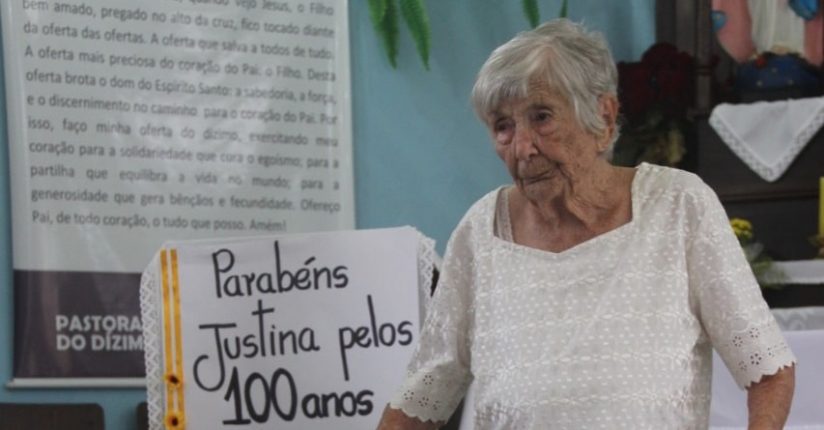 bem amado, pregado no alto da cruz, fico tocado diante
da oferta das ofertas. A oferta que salva a todos de tudo.
A oferta mais preciosa do coração do Pai: o Filho. Desta
oferta brota o dom do Espírito Santo: a sabedoria, a força,
e o discernimento no caminho para o coração do Pai. Por
isso, faço minha oferta do dízimo, exercitando meu
coração para a solidariedade que cura o egoísmo; para a
partilha que equilibra a vida no mundo; para a
generosidade que gera bênçãos e fecundidade. Ofereço
Pai, de todo coração, o tudo que posso. Amém!
PASTORA
DO DÍZIM
Parabéns
Justina pelos
100 anos